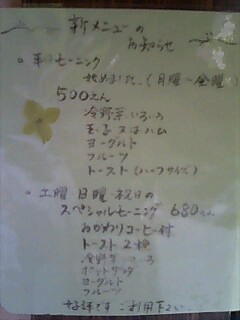 新メニューの
お知らせ
。 モーニング
始めました。(月曜〜金曜)
500えん
冷野菜いろいろ
玉子又はハム
ヨーグルト
フルーツ
トースト(ハーフサイズ)
。 土曜 日曜・祝日の
スペシャルモーニング 680えん
おかわりコーヒー付
トースト2種
冷野菜
ホットサンド
ヨーグルト
フルーツ
好評です ご利用下さい